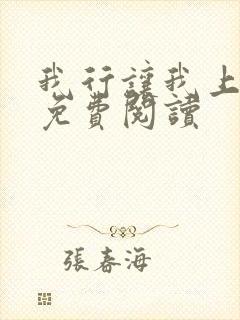 我行讓我上
免費閱讀
張春海